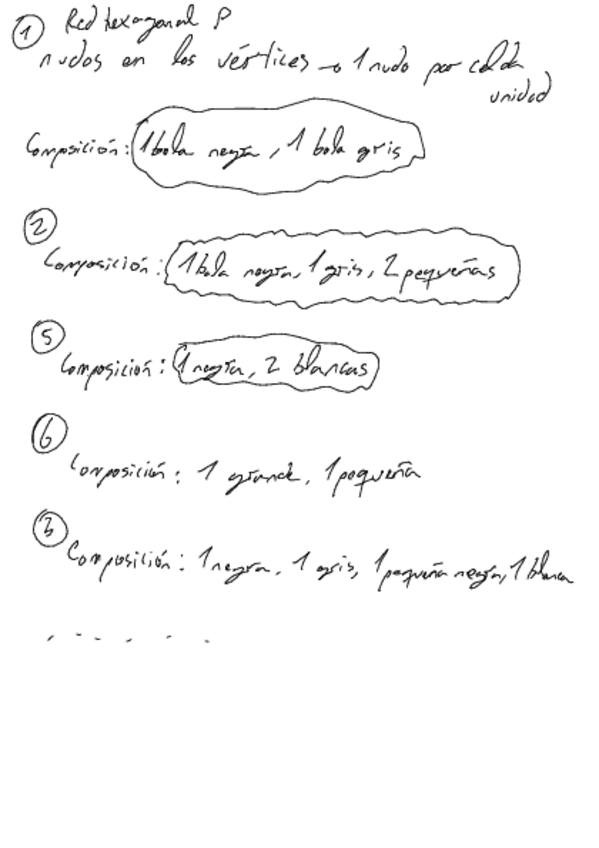 1 Red hexagonal P
nudos en los vértices → 1 nudo por celda
unidad
Composición: 1 bola negra, 1 bola gris
2
Composición: 1 bola negra, 1 gris, 2 pequeñas
5
Composición: 1 negra, 2 blancas
6
Composición: 1 grande, 1 pequeña
3
Composición: 1 negra, 1 gris, 1 pequeña negra, 1 blanca